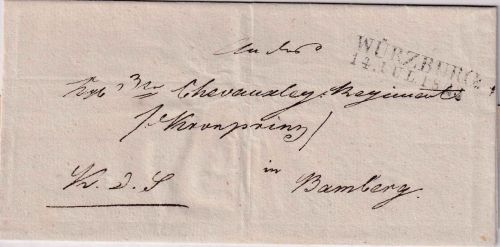 An das
WÜRZBURG
14. JULI
Kgl 3te Chevauxleg. Regiment
/: Kronprinz /
in
K. D. S Bamberg.